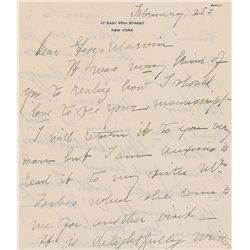 February 25th
47 EAST 49TH STREET
NEW YORK
Dear George Marvin
It was very kind of
you to realize how I should
love to see your manuscript
I will return it to you very
soon but I am anxious to
read it to my sister Mrs.
Forbes when she comes to
me for another visit
It is delightfully written